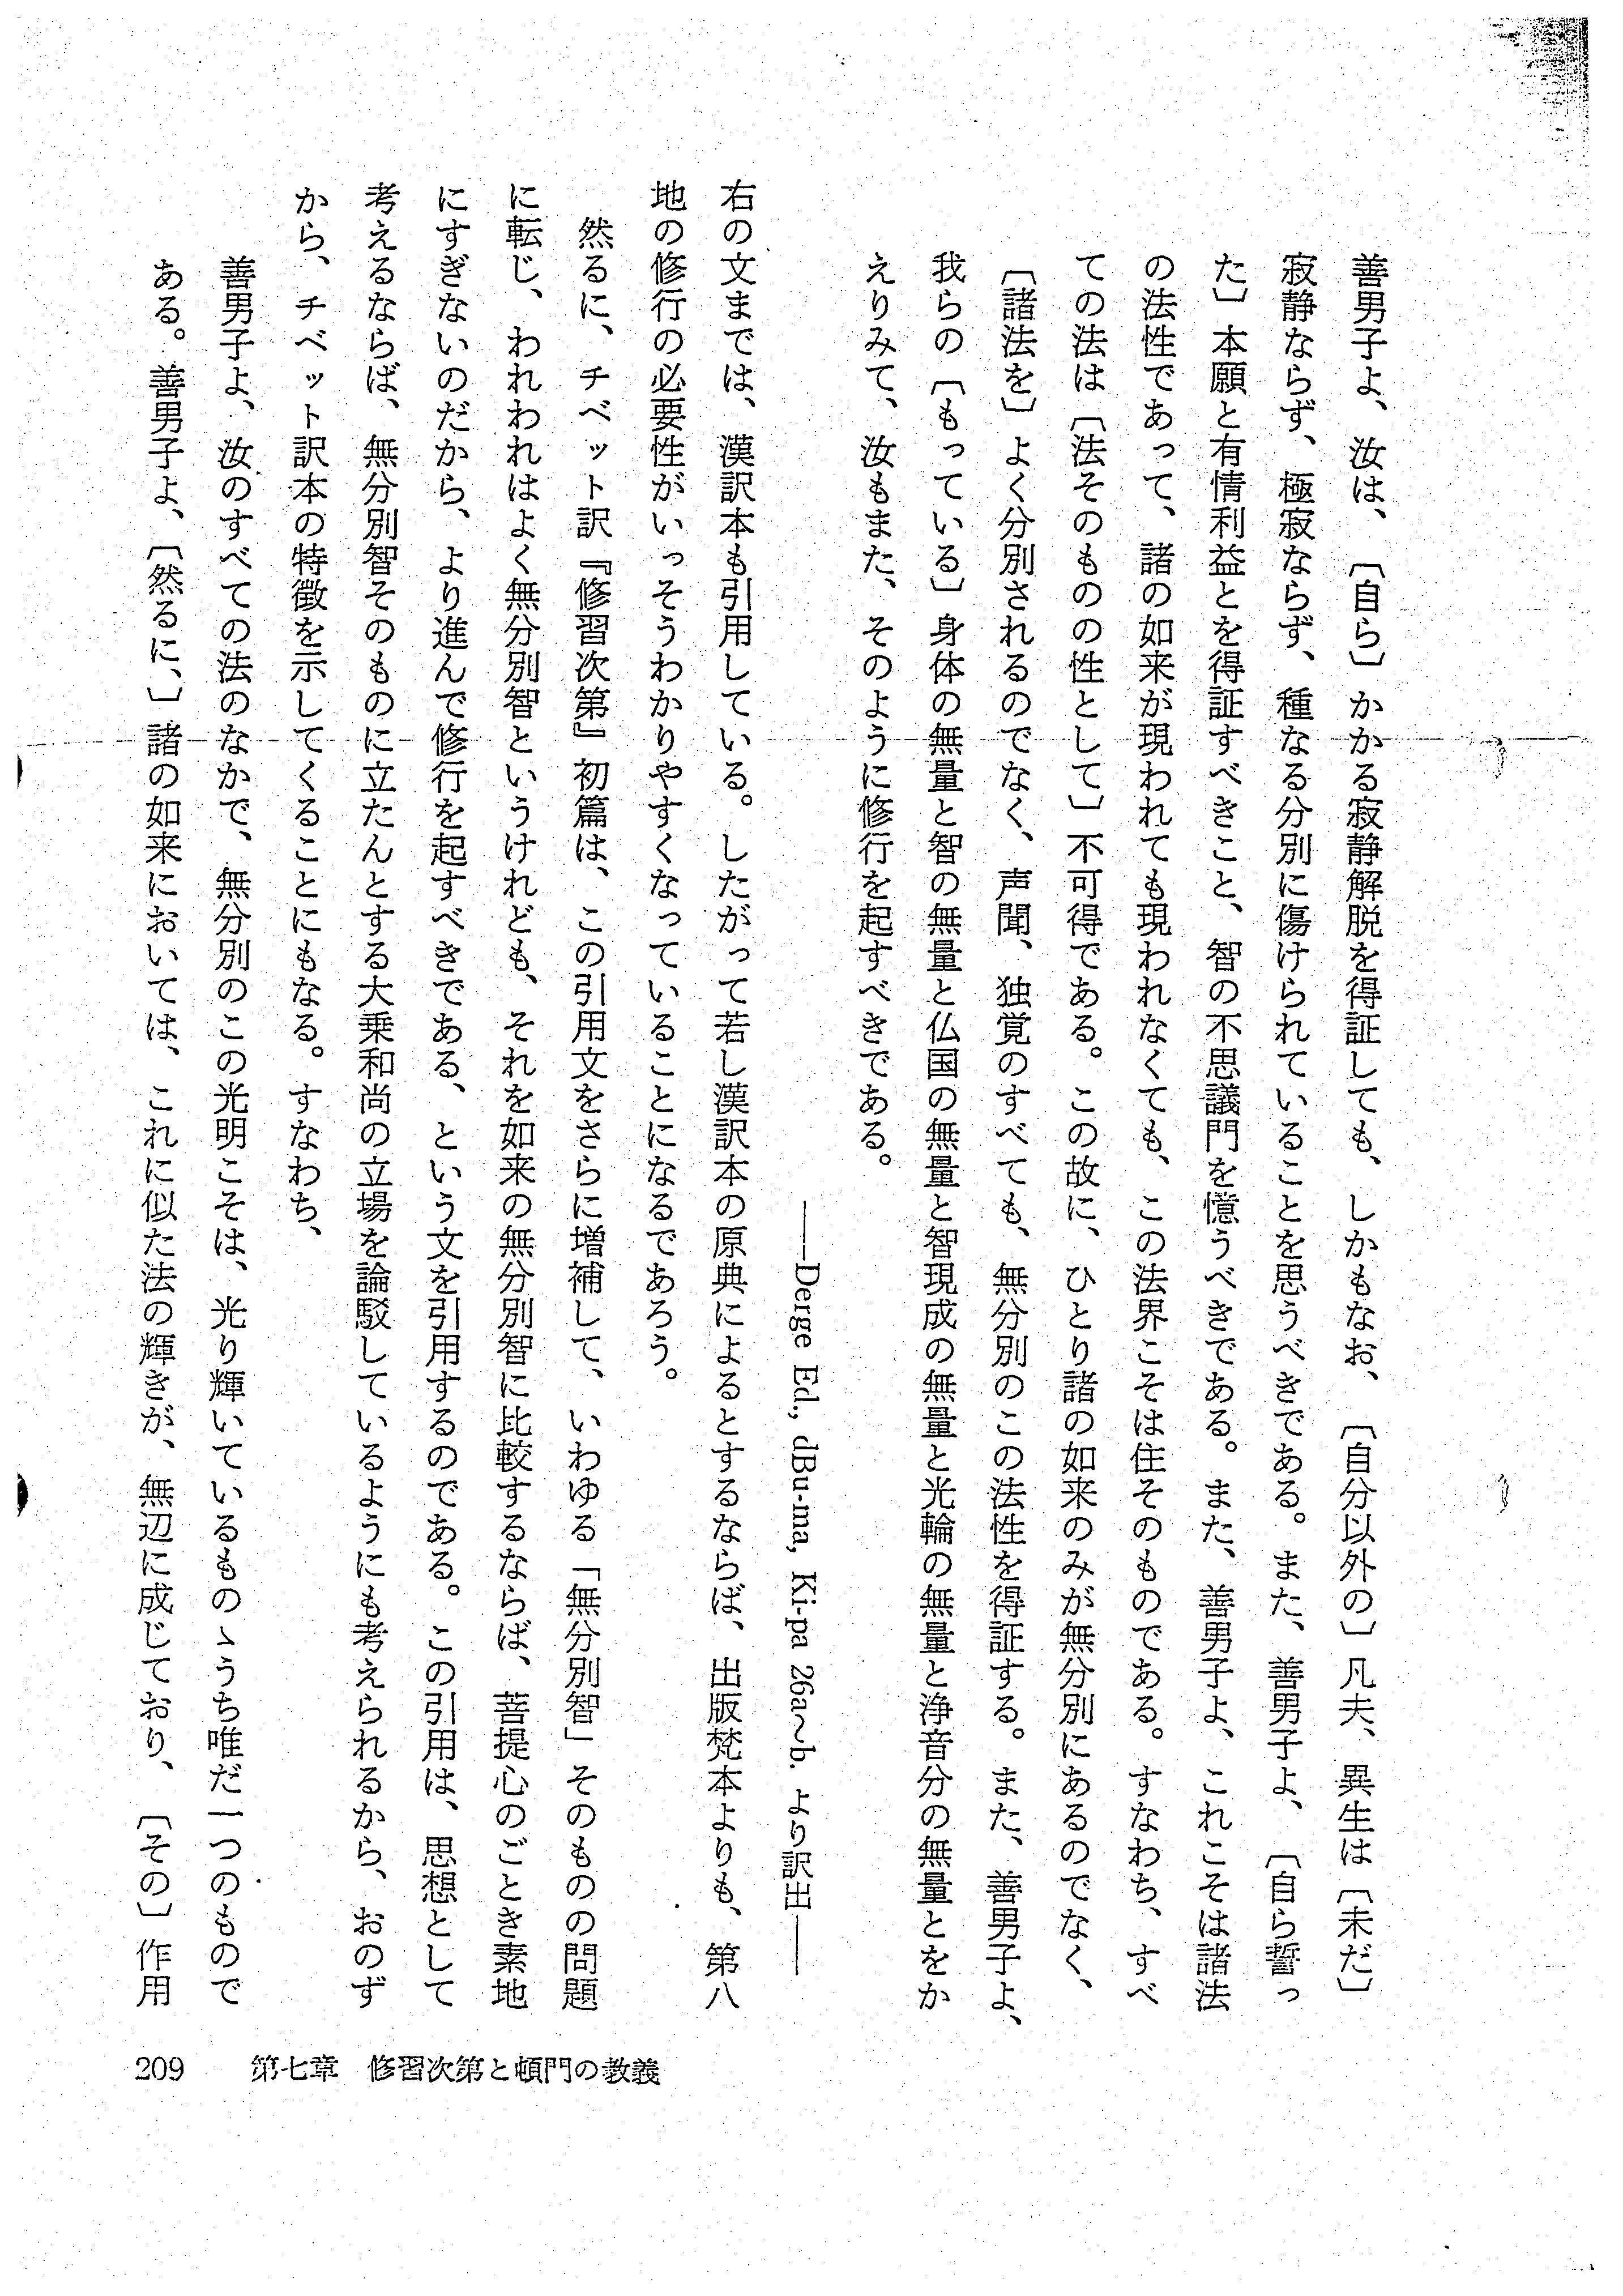 善男子よ、汝は、〔自ら〕かかる寂静解脱を得証しても、しかもなお、〔自分以外の〕凡夫、異生は〔未だ〕
寂静ならず、極寂ならず、種なる分別に傷けられていることを思うべきである。また、善男子よ、〔自ら誓っ
た〕本願と有情利益とを得証すべきこと、智の不思議門を憶うべきである。また、善男子よ、これこそは諸法
の法性であって、諸の如来が現われても現われなくても、この法界こそは住そのものである。すなわち、すべ
ての法は〔法そのものの性として〕不可得である。この故に、ひとり諸の如来のみが無分別にあるのでなく、
〔諸法を〕よく分別されるのでなく、声聞、独覚のすべても、無分別のこの法性を得証する。また、善男子よ、
我らの〔もっている〕身体の無量と智の無量と仏国の無量と智現成の無量と光輪の無量と浄音分の無量とをか
えりみて、汝もまた、そのように修行を起すべきである。
――Derge Ed., dBu-ma, Ki-pa 26a～b. より訳出――
右の文までは、漢訳本も引用している。したがって若し漢訳本の原典によるとするならば、出版梵本よりも、第八
地の修行の必要性がいっそうわかりやすくなっていることになるであろう。
然るに、チベット訳『修習次第』初篇は、この引用文をさらに増補して、いわゆる「無分別智」そのものの問題
に転じ、われわれはよく無分別智というけれども、それを如来の無分別智に比較するならば、菩提心のごとき素地
にすぎないのだから、より進んで修行を起すべきである、という文を引用するのである。この引用は、思想として
考えるならば、無分別智そのものに立たんとする大乗和尚の立場を論駁しているようにも考えられるから、おのず
から、チベット訳本の特徴を示してくることにもなる。すなわち、
善男子よ、汝のすべての法のなかで、無分別のこの光明こそは、光り輝いているものゝうち唯だ一つのもので
ある。善男子よ、〔然るに、〕諸の如来においては、これに似た法の輝きが、無辺に成じており、〔その〕作用
209 第七章 修習次第と頓門の教義